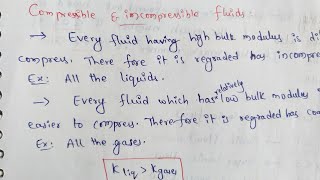 Compressible & incompressible fluids:
→ Every fluid having high bulk modulus is di
compress. There fore it is regraded has incompres
Ex: All the liquids.
→ Every fluid which has relatively low bulk modulus
easier to compress. Therefore it is regraded has com
Ex: All the gases.
K liq > K gases